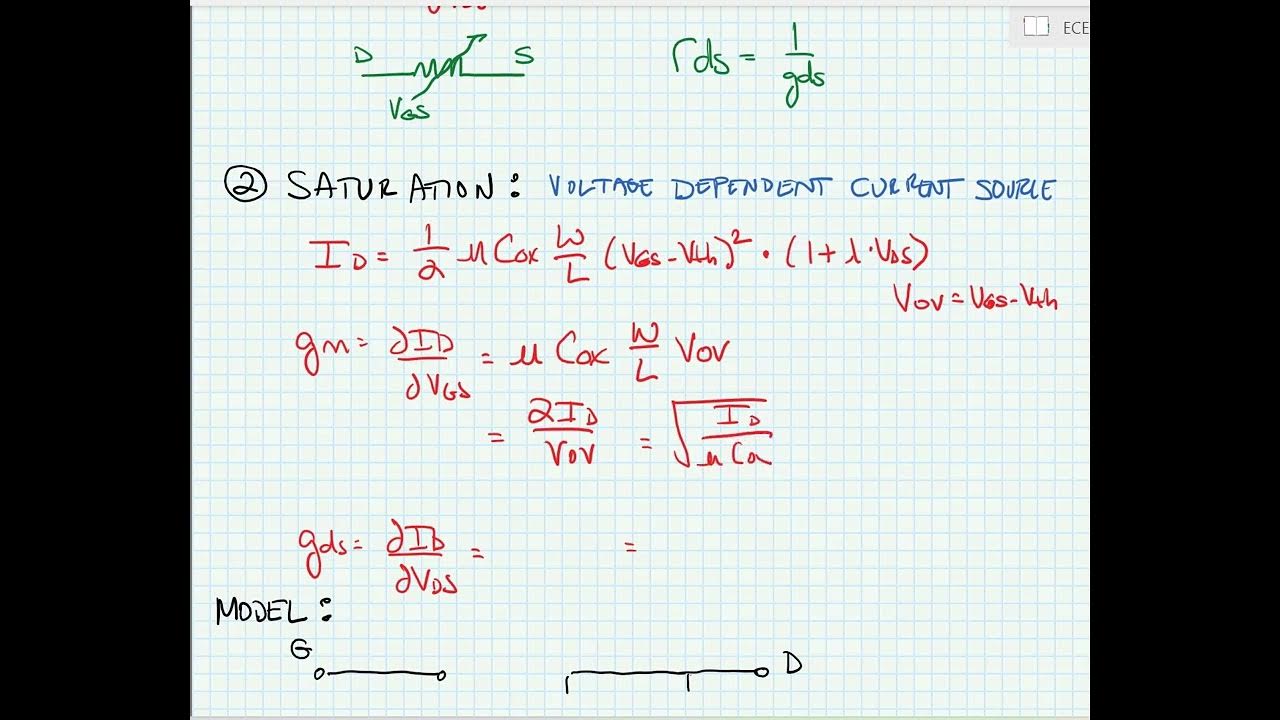 ECE
D S rds = 1/gds
VGS
② SATURATION: VOLTAGE DEPENDENT CURRENT SOURCE
ID = 1/2 μ Cox W/L (VGS - Vth)² · (1 + λ · VDS)
VOV = VGS - Vth
gm = ∂ID/∂VGS = μ Cox W/L VOV
= 2ID/VOV = √(ID/μ Cox)
gds = ∂ID/∂VDS = =
MODEL:
G D